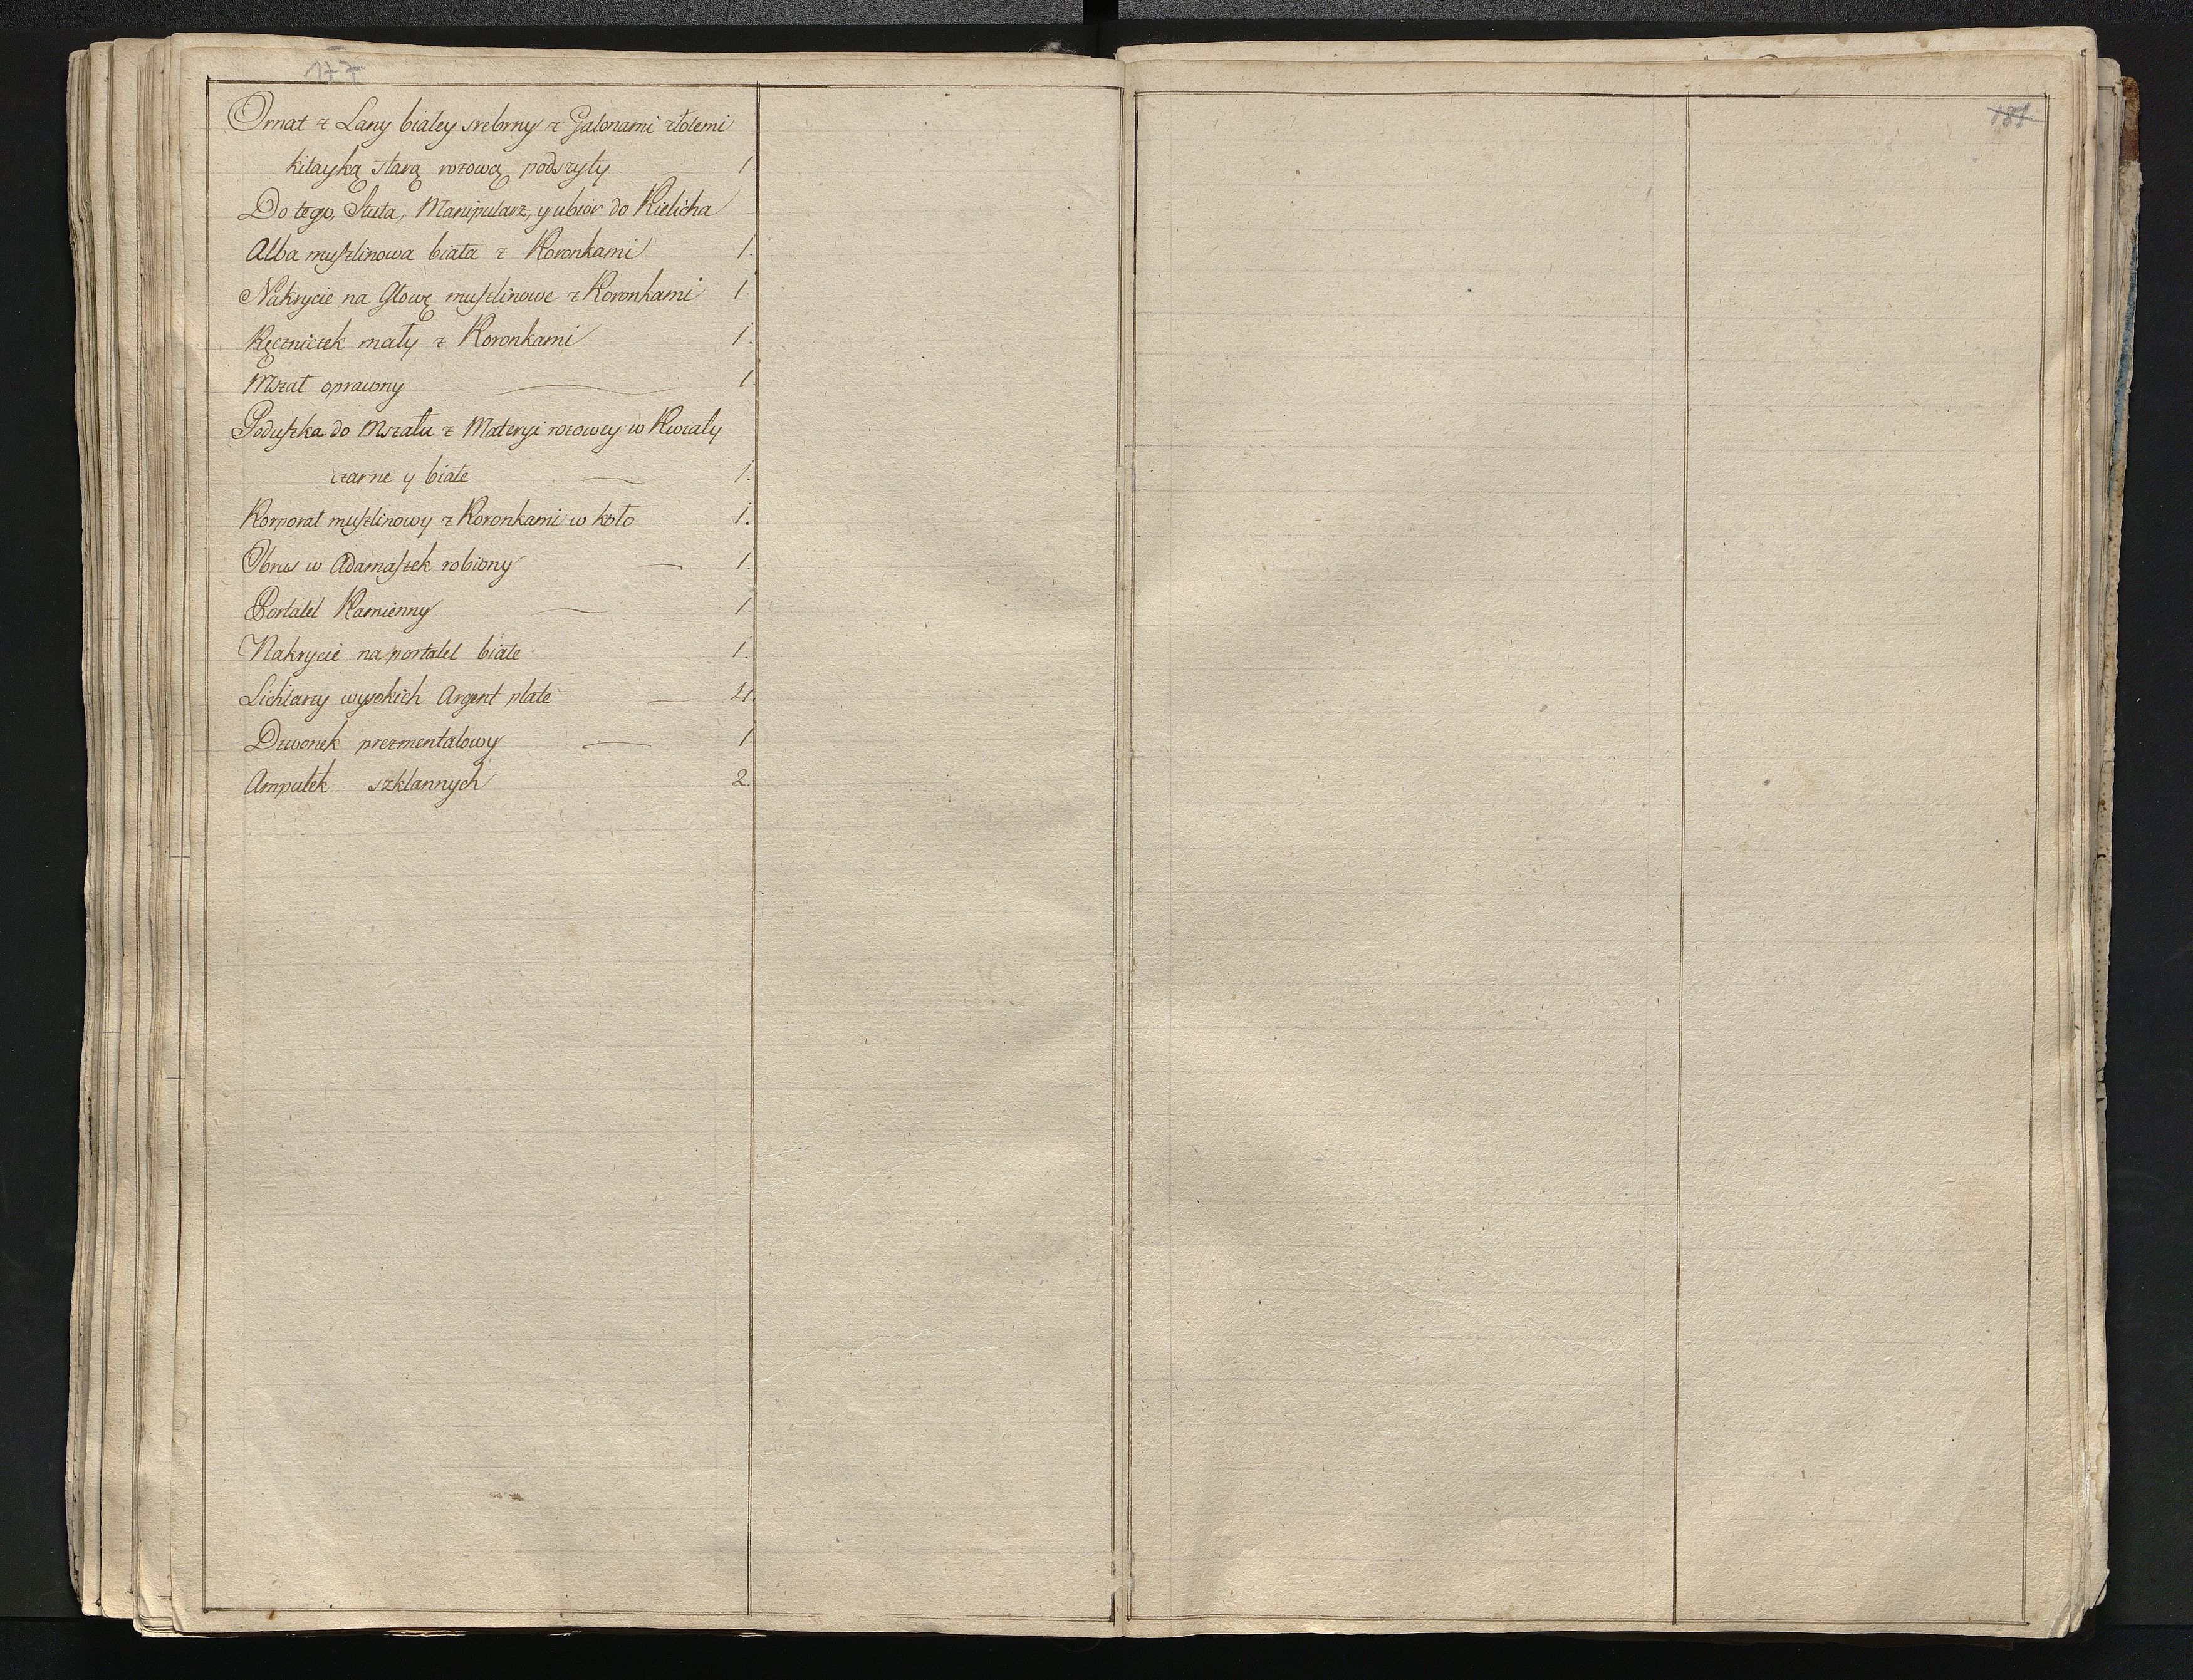 177
Ornat z Lamy białey srebrny z Galonami złotemi
kitayką starą rozową podszyty 1
Do tego, Stuła, Manipularz, y ubiór do Kielicha
Alba muszlinowa biała z Koronkami 1.
Nakrycie na Głowę muszlinowe z Koronkami 1.
Ręczniczek mały z Koronkami 1.
Mszał oprawny 1.
Poduszka do Mszału z Materyi rozowey w Kwiaty
czarne y białe 1.
Korporał muszlinowy z Koronkami w koło 1.
Obrus w Adamaszek robiony 1.
Portatel Kamienny 1.
Nakrycie na portatel białe 1.
Lichtarzy wysokich Argent plate 4.
Dzwonek prezmentalowy 1.
Ampułek szklannych 2.
181